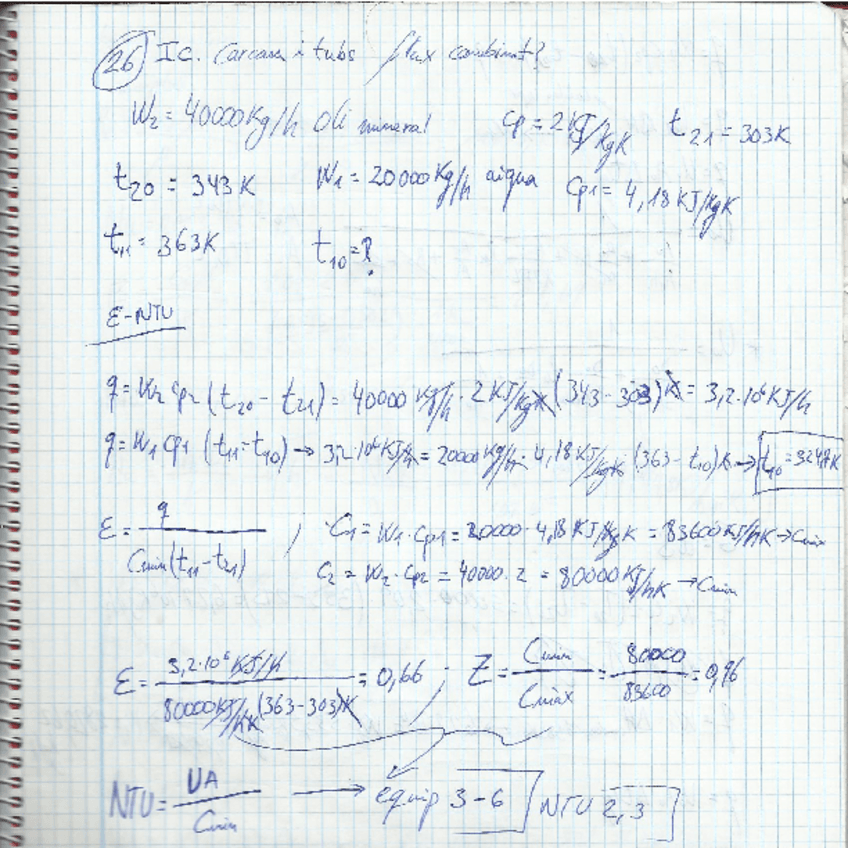 26 I.c. carcassa i tubs flux combinat?
W2 = 40000 Kg/h Oli mineral Cp = 2 KJ/KgK t21 = 303K
t20 = 343 K W1 = 20000 Kg/h aigua Cp1 = 4,18 KJ/KgK
t11 = 363K t10 = ?
ε-NTU
q = W2 Cp2 (t20 - t21) = 40000 Kg/h · 2 KJ/KgK (343 - 303) K = 3,2·10⁶ KJ/h
q = W1 Cp1 (t11 - t10) → 3,2·10⁶ KJ/h = 20000 Kg/h · 4,18 KJ/KgK (363 - t10) K → t10 = 324,7K
ε = q / Cmin(t11 - t21) ; C1 = W1 · Cp1 = 20000 · 4,18 KJ/KgK = 83600 KJ/hK → Cmàx
C2 = W2 · Cp2 = 40000 · 2 = 80000 KJ/hK → Cmin
ε = 3,2·10⁶ KJ/h / 80000 KJ/hK (363-303)K = 0,66 ; Z = Cmin / Cmàx = 80000 / 83600 = 0,96
NTU = UA / Cmin → equip 3-6 NTU 2,3